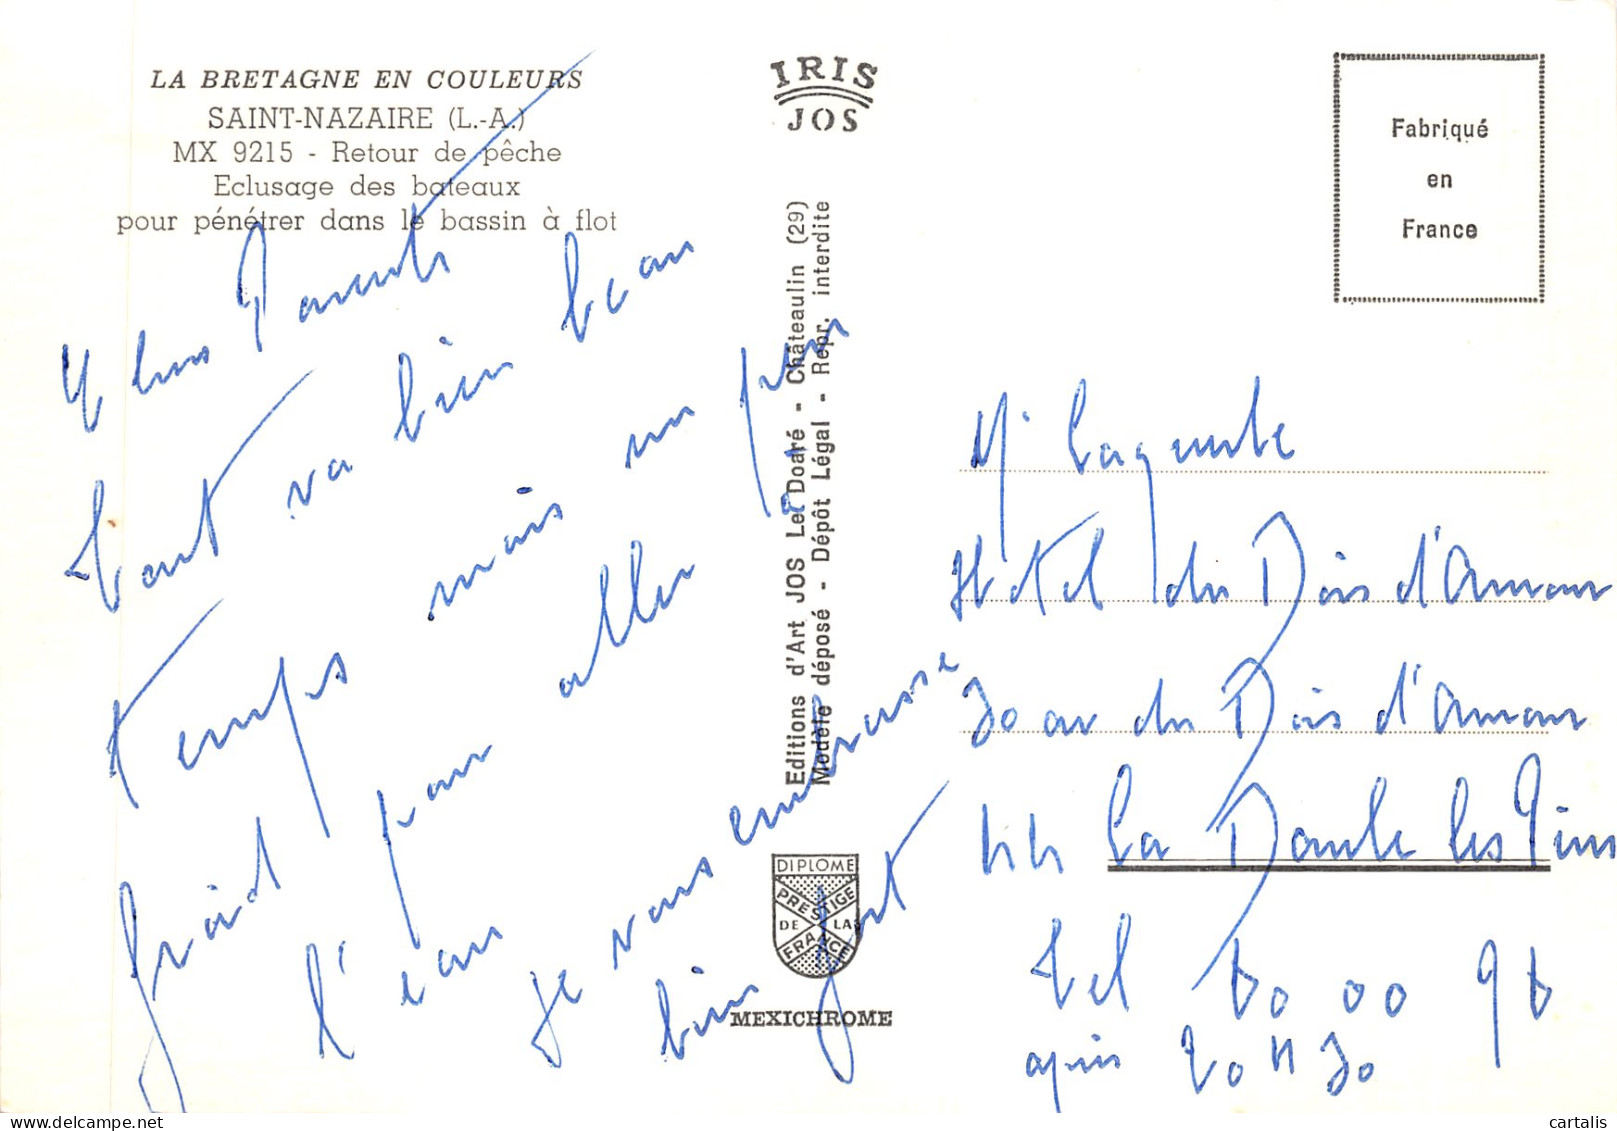 LA BRETAGNE EN COULEURS
SAINT-NAZAIRE (L.-A.)
MX 9215 - Retour de pêche
Eclusage des bateaux
pour pénétrer dans le bassin à flot
IRIS
JOS
Fabriqué
en
France
Editions d'Art JOS Le Doaré - Châteaulin (29)
Modèle déposé - Dépôt Légal - Repr. interdite
Parents
tout va bien beau
temps mais un peu
froid pour aller à
l'eau
je vous embrasse
bien fort
DIPLOME
PRESTIGE
DE LA
FRANCE
MEXICHROME
Mr
Hotel du Bois d'Amour
30 av du Bois d'Amour
44 La Baule les Pins
Tel 60 00 96
après 20 H 30
cartalis